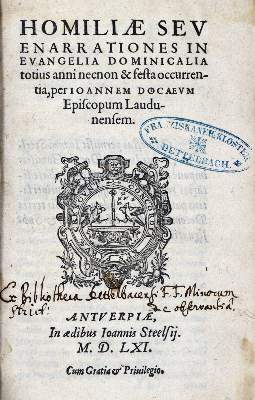 HOMILIÆ SEV
ENARRATIONES IN
EVANGELIA DOMINICALIA
totius anni necnon & festa occurren-
tia, per IOANNEM DOCAEVM
Episcopum Laudu-
nensem.
FRANZISKANER-KLOSTER
DETTELBACH.
Ex Bibliotheca Dettelbacensi F. F. Minorum
Strict: de observantiâ
ANTVERPIÆ,
In ædibus Ioannis Steelsij.
M. D. LXI.
Cum Gratia & Priuilegio.